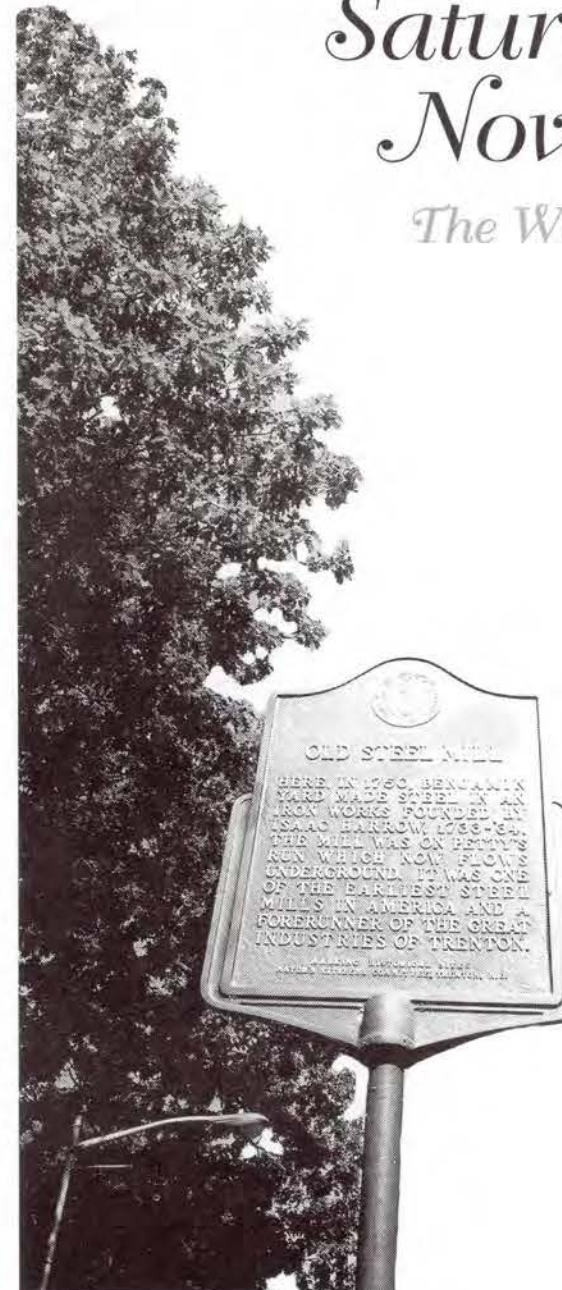 Satur
Nov
The W
OLD STEEL MILL
HERE IN 1750, BENJAMIN
YARD MADE STEEL IN AN
IRON WORKS FOUNDED BY
ISAAC HARROW, 1733-'34.
THE MILL WAS ON PETTY'S
RUN WHICH NOW FLOWS
UNDERGROUND. IT WAS ONE
OF THE EARLIEST STEEL
MILLS IN AMERICA AND A
FORERUNNER OF THE GREAT
INDUSTRIES OF TRENTON.
MARKING HISTORICAL SITES
COMMITTEE, TRENTON, N.J.